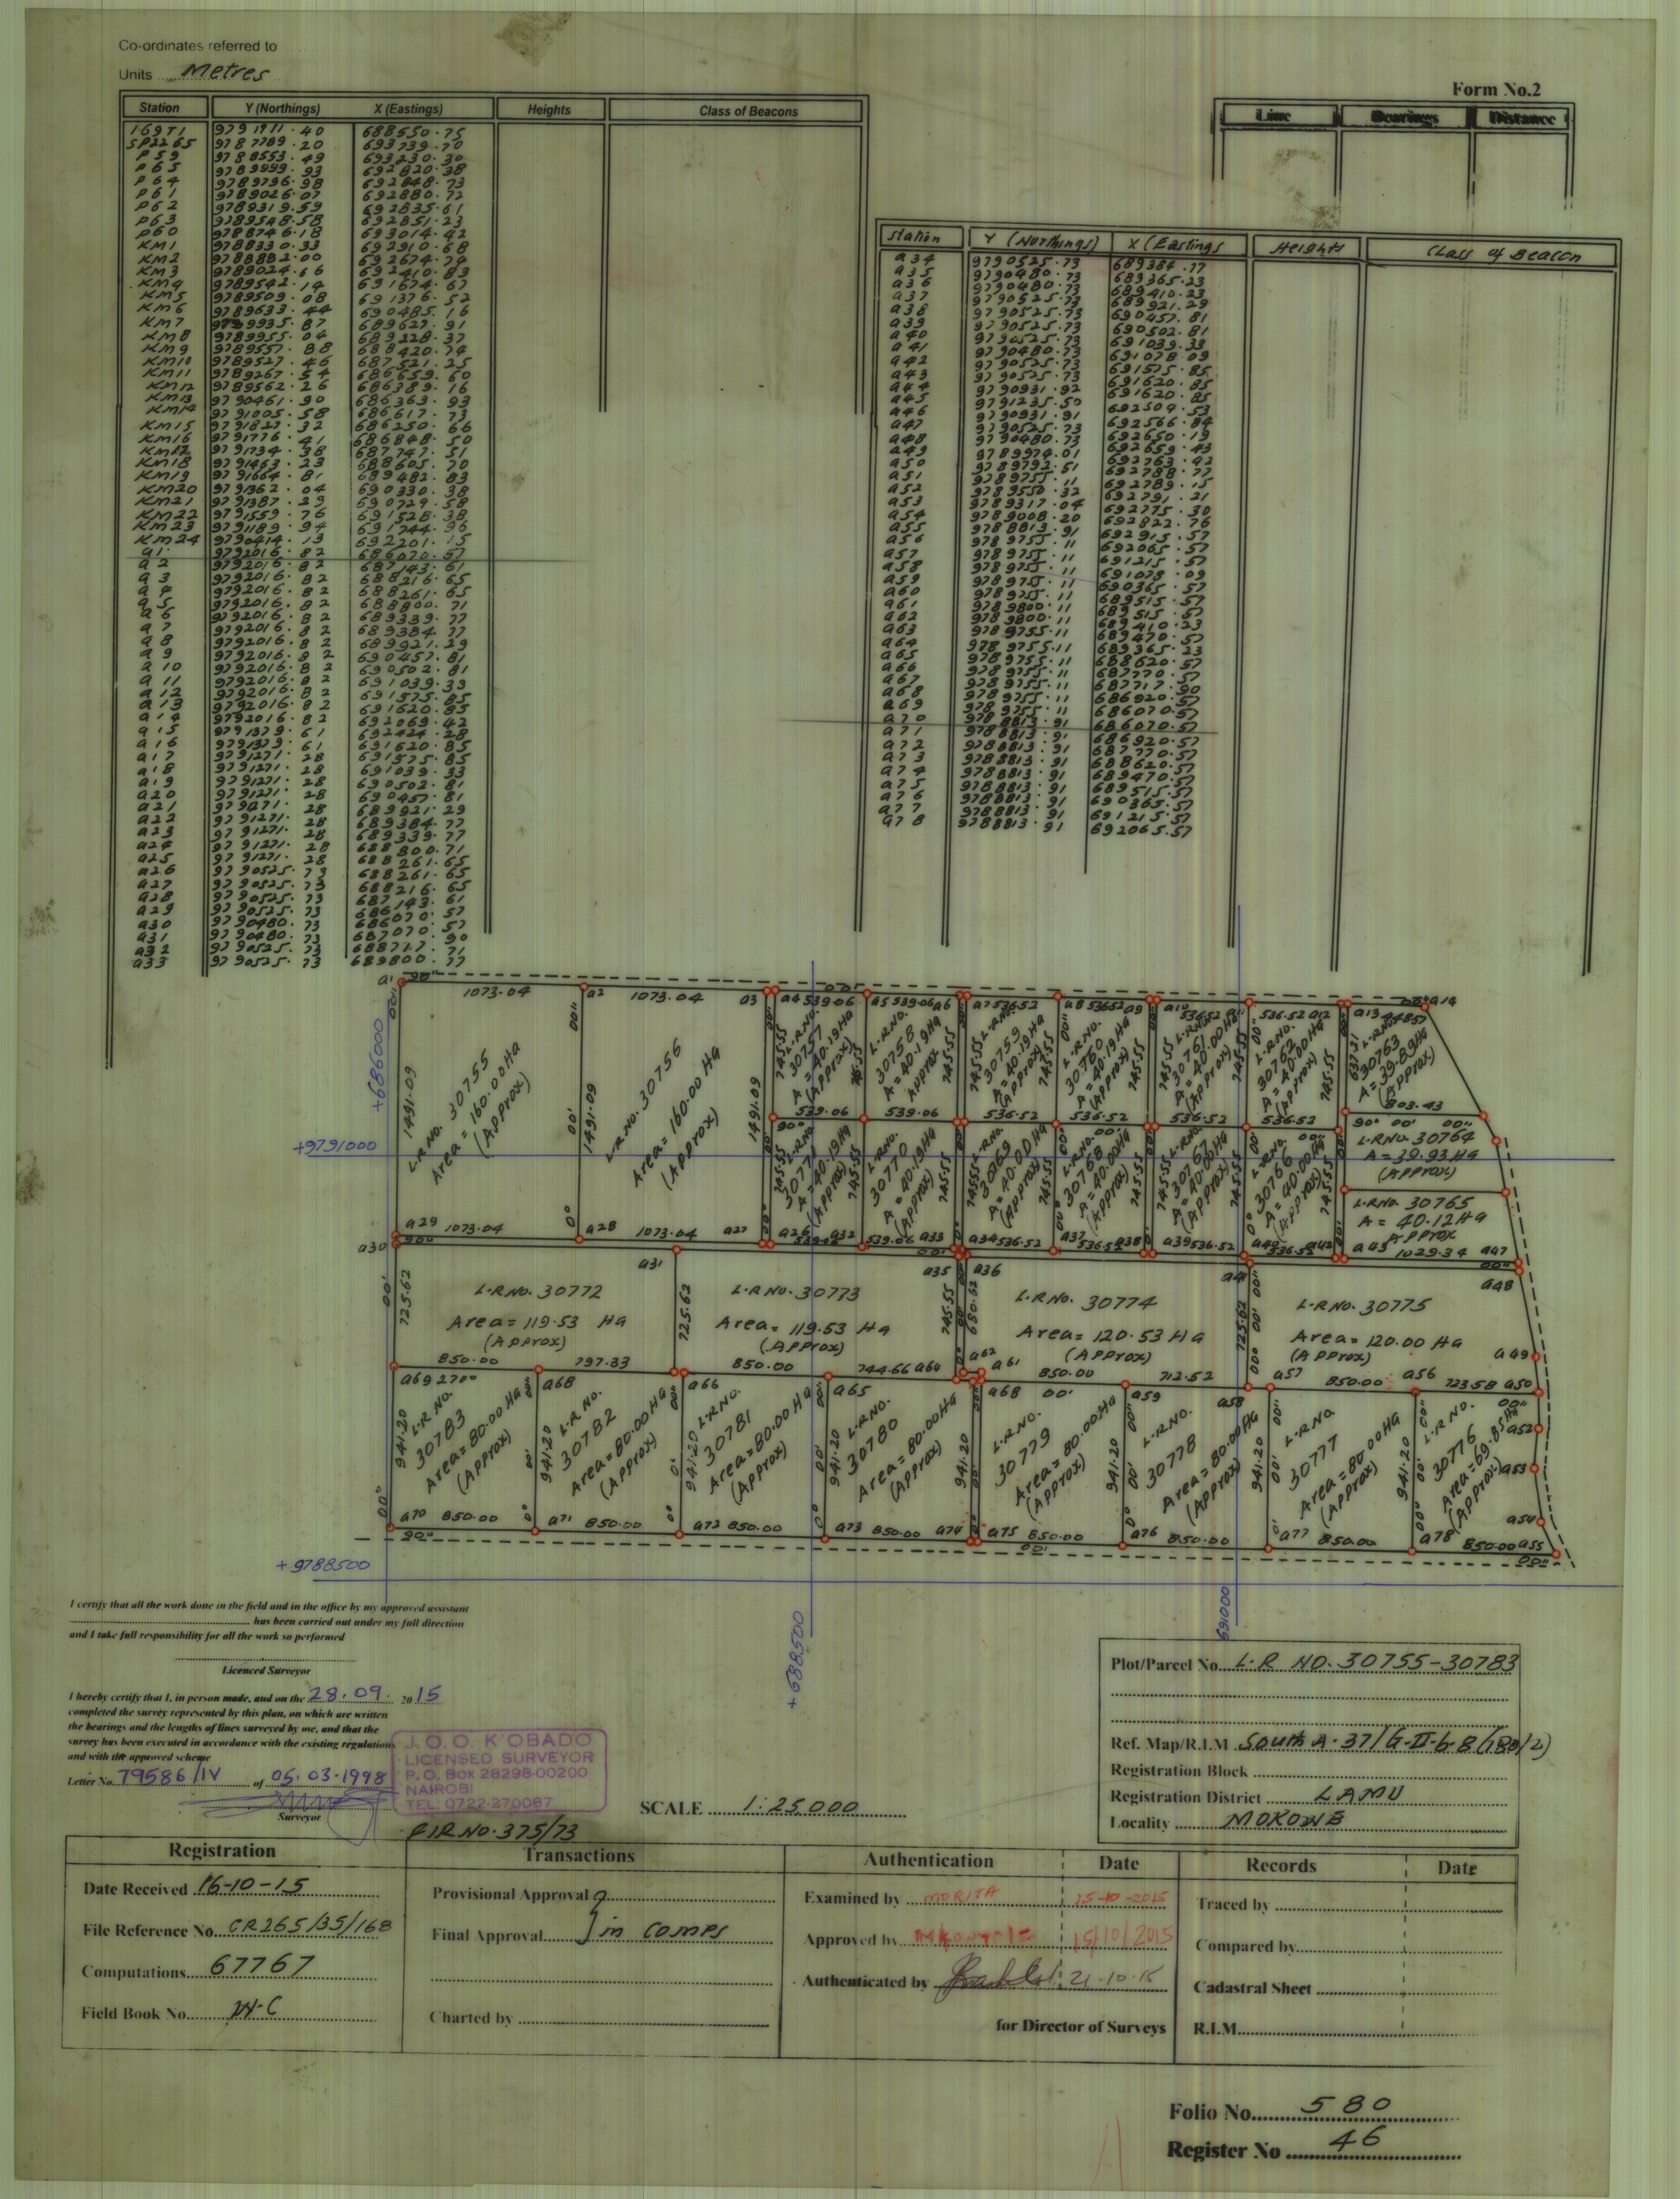 Co-ordinates referred to
Units Metres
Form No.2
Station Y (Northings) X (Eastings) Heights Class of Beacons
Line Bearings Distance
169T1 9791911.40 688550.75
SP2265 9787789.20 693739.70
P59 9788553.49 693230.30
P65 9789999.93 692820.38
P64 9789796.98 692848.73
P61 9789026.07 692880.72
P62 9789319.59 692835.61
P63 9789548.58 692851.23
P60 9788746.18 693014.42
KM1 9788330.33 692910.68
KM2 9788882.00 692674.79
KM3 9789024.66 692410.83
KM4 9789542.14 691674.67
KM5 9789509.08 691376.52
KM6 9789633.44 690485.16
KM7 9789935.87 689627.91
KM8 9789955.04 689228.37
KM9 9789557.88 688420.74
KM10 9789527.46 687521.25
KM11 9789267.54 686659.60
KM12 9789562.26 686389.16
KM13 9790461.90 686363.93
KM14 9791005.58 686617.73
KM15 9791827.32 686250.66
KM16 9791776.41 686848.50
KM17 9791734.38 687747.51
KM18 9791463.23 688605.70
KM19 9791664.81 689482.83
KM20 9791362.04 690330.38
KM21 9791387.29 690729.58
KM22 9791559.76 691528.38
KM23 9791189.94 691744.96
KM24 9790414.13 692201.15
a1 9792016.82 686070.57
a2 9792016.82 687143.61
a3 9792016.82 688216.65
a4 9792016.82 688261.65
a5 9792016.82 688800.71
a6 9792016.82 689339.77
a7 9792016.82 689384.77
a8 9792016.82 689921.29
a9 9792016.82 690457.81
a10 9792016.82 690502.81
a11 9792016.82 691039.33
a12 9792016.82 691575.85
a13 9792016.82 691620.85
a14 9792016.82 692069.42
a15 9791379.61 692424.28
a16 9791379.61 691620.85
a17 9791271.28 691575.85
a18 9791271.28 691039.33
a19 9791271.28 690502.81
a20 9791271.28 690457.81
a21 9791271.28 689921.29
a22 9791271.28 689384.77
a23 9791271.28 689339.77
a24 9791271.28 688800.71
a25 9791271.28 688261.65
a26 9790525.73 688261.65
a27 9790525.73 688216.65
a28 9790525.73 687143.61
a29 9790525.73 686070.57
a30 9790480.73 686070.57
a31 9790480.73 687070.90
a32 9790525.73 688717.71
a33 9790525.73 689800.77
Station Y (Northings) X (Eastings Heights Class of Beacon
a34 9790525.73 689384.77
a35 9790480.73 689365.23
a36 9790480.73 689410.23
a37 9790525.73 689921.29
a38 9790525.73 690457.81
a39 9790525.73 690502.81
a40 9790525.73 691039.33
a41 9790480.73 691078.09
a42 9790525.73 691575.85
a43 9790525.73 691620.85
a44 9790931.92 691620.85
a45 9791235.50 692509.53
a46 9790931.91 692566.84
a47 9790525.73 692650.19
a48 9790480.73 692659.43
a49 9789974.01 692763.92
a50 9789792.51 692788.77
a51 9789755.11 692789.15
a52 9789550.32 692791.21
a53 9789317.04 692775.30
a54 9789008.20 692822.76
a55 9788813.91 692915.57
a56 9789755.11 692065.57
a57 9789755.11 691215.57
a58 9789755.11 691078.09
a59 9789755.11 690365.57
a60 9789755.11 689515.57
a61 9789800.11 689515.57
a62 9789800.11 689410.23
a63 9789755.11 689470.57
a64 9789755.11 689365.23
a65 9789755.11 688620.57
a66 9789755.11 687770.57
a67 9789755.11 687717.90
a68 9789755.11 686920.57
a69 9789755.11 686070.57
a70 9788813.91 686070.57
a71 9788813.91 686920.57
a72 9788813.91 687770.57
a73 9788813.91 688620.57
a74 9788813.91 689470.57
a75 9788813.91 689515.57
a76 9788813.91 690365.57
a77 9788813.91 691215.57
a78 9788813.91 692065.57
a1 90° 1073.04 a2 1073.04 a3 a4 539.06 a5 539.06 a6 a7 536.52 a8 536.52 a9 a10 536.52 a11 536.52 a12 a13 448.57 a14
+686000
+9791000
1491.09
L.R No. 30755
Area = 160.00Ha
(Approx)
1491.09
L.R No. 30756
Area = 160.00 Ha
(Approx)
1491.09
745.55
L.R No.
30757
A = 40.19Ha
(Approx)
L.R No.
30758
A = 40.19Ha
Approx
745.55
L.R No.
30759
A = 40.19Ha
(Approx)
745.55
L.R No.
30760
A = 40.19Ha
(Approx)
745.55
L.R No.
30761
A = 40.00Ha
(Approx)
745.55
L.R No.
30762
A = 40.00Ha
(Approx)
745.55
637.21
L.R No.
30763
A = 39.89Ha
(Approx)
539.06 539.06 536.52 536.52 536.52 536.52 803.43
90° 00' 00"
L.R No. 30764
A = 39.93Ha
(Approx)
L.R No. 30765
A = 40.12Ha
Approx
L.R No.
30771
A = 40.19Ha
(Approx)
L.R No.
30770
A = 40.19Ha
(Approx)
L.R No.
30769
A = 40.00Ha
(Approx)
L.R No.
30768
A = 40.00Ha
(Approx)
L.R No.
30767
A = 40.00Ha
(Approx)
L.R No.
30766
A = 40.00Ha
(Approx)
a29 1073.04 a28 1073.04 a27 a26 539.06 a32 539.06 a33 a34 536.52 a37 536.52 a38 a39 536.52 a40 536.52 a42 a43 1029.34 a47
a30 90° a31 a35 a36 a41 a48
725.62
L.R No. 30772
Area = 119.53 Ha
(Approx)
725.62
L.R No. 30773
Area = 119.53 Ha
(Approx)
745.55 680.62
L.R No. 30774
Area = 120.53 Ha
(Approx)
725.62
L.R No. 30775
Area = 120.00 Ha
(Approx)
a49
850.00 797.33 850.00 744.66 a64 a62 a61 850.00 712.52 a57 850.00 a56 723.58 a50
a69 270° a68 a66 a65 a68 00' a59 a58
941.20
L.R No.
30783
Area = 80.00 Ha
(Approx)
941.20
L.R No.
30782
Area = 80.00 Ha
(Approx)
941.20
L.R No.
30781
Area = 80.00 Ha
(Approx)
941.20
L.R No.
30780
Area = 80.00Ha
(Approx)
941.20
L.R No.
30779
Area = 80.00Ha
(Approx)
941.20
L.R No.
30778
Area = 80.00Ha
(Approx)
941.20
L.R No.
30777
Area = 80.00Ha
(Approx)
941.20
L.R No.
30776
Area = 69.85Ha
(Approx)
a52
a53
a54
a70 850.00 a71 850.00 a72 850.00 a73 850.00 a74 a75 850.00 a76 850.00 a77 850.00 a78 850.00 a55
90° 00' 00"
+9788500
+688500
691000
I certify that all the work done in the field and in the office by my approved assistant
has been carried out under my full direction
and I take full responsibility for all the work so performed
Licenced Surveyor
I hereby certify that I, in person made, and on the 28.09. 2015
completed the survey represented by this plan, on which are written
the bearings and the lengths of lines surveyed by me, and that the
survey has been executed in accordance with the existing regulations
and with the approved scheme
Letter No. 79586/IV of 05.03.1998
Surveyor
J. O. O. K'OBADO
LICENSED SURVEYOR
P. O. Box 28298-00200
NAIROBI
TEL: 0722-270087
F/R NO. 375/73
SCALE 1:25,000
Plot/Parcel No. L.R NO. 30755-30783
Ref. Map/R.I.M South A-37/G-II-6-8 (180/2)
Registration Block
Registration District LAMU
Locality MOKOWE
Registration
Date Received 16-10-15
File Reference No. CR265/35/168
Computations 67767
Field Book No. N-C
Transactions
Provisional Approval
Final Approval } in comps
Charted by
Authentication Date
Examined by MORITA 15-10-2015
Approved by 15/10/2015
Authenticated by 21.10.15
for Director of Surveys
Records Date
Traced by
Compared by
Cadastral Sheet
R.I.M.
Folio No. 580
Register No 46